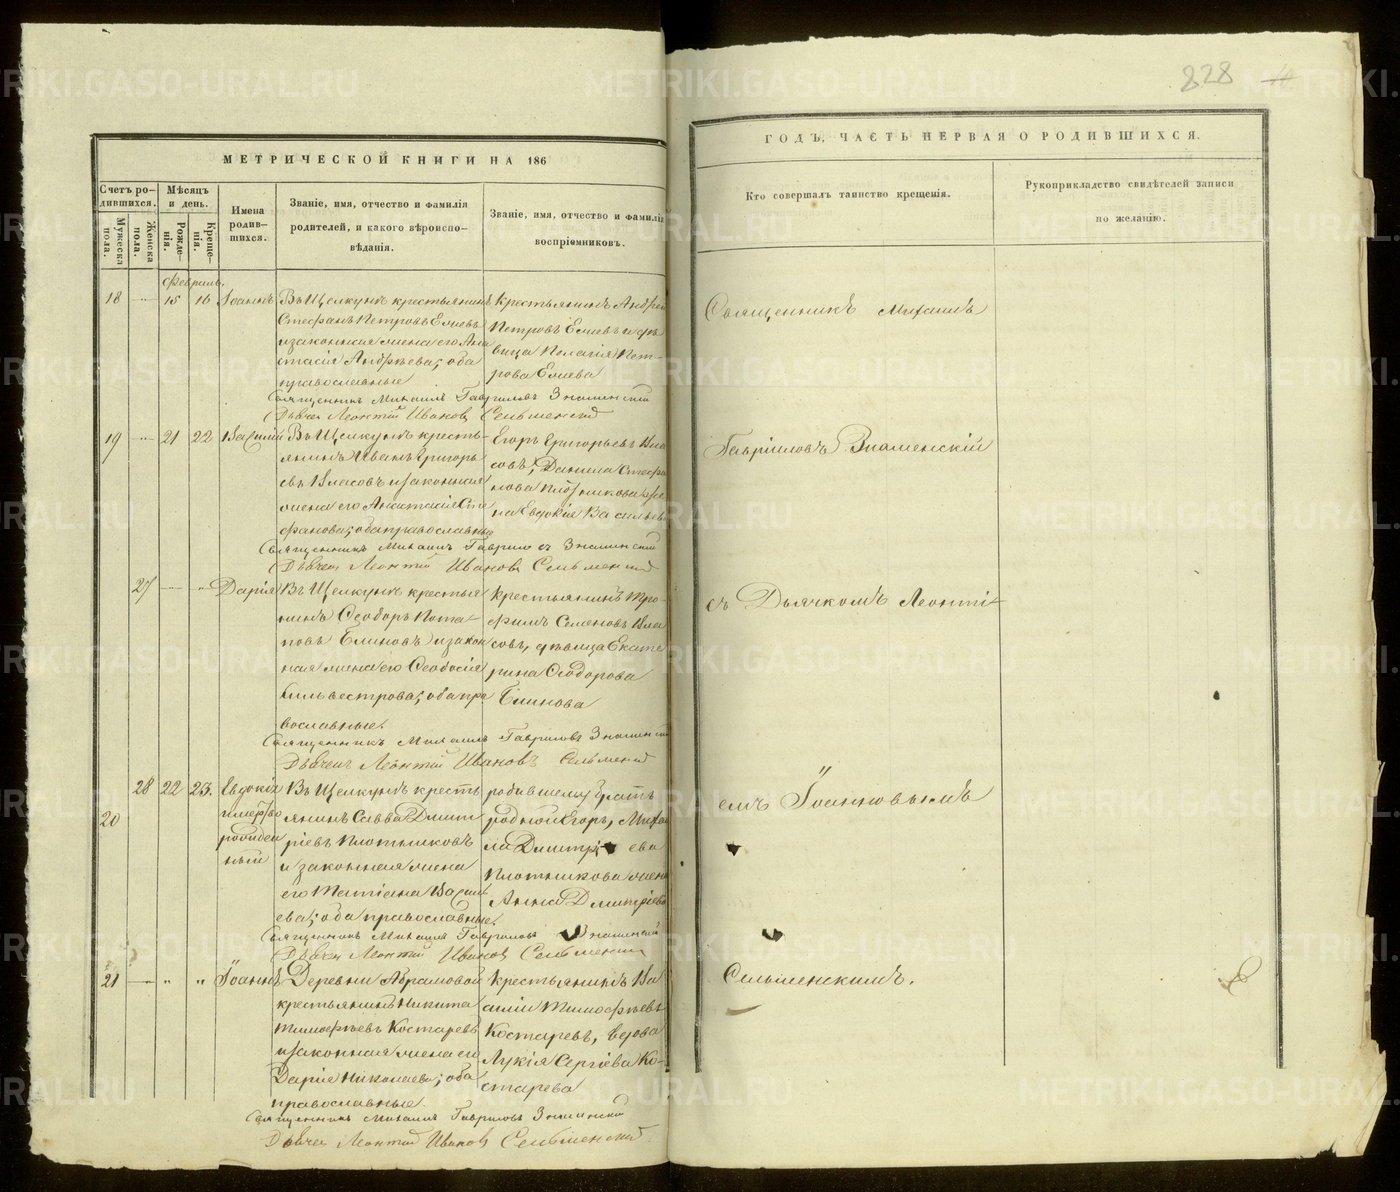 828
МЕТРИЧЕСКОЙ КНИГИ НА 186
ГОДЪ, ЧАСТЬ ПЕРВАЯ О РОДИВШИХСЯ.
Счетъ ро-
дившихся.
Мужеска
пола.
Женска
пола.
Мѣсяцъ
и день.
Рожде-
нія.
Креще-
нія.
Имена
родив-
шихся.
Званіе, имя, отчество и фамилія
родителей, и какого вѣроиспо-
вѣданія.
Званіе, имя, отчество и фамилія
воспріемниковъ.
Кто совершалъ таинство крещенія.
Рукоприкладство свидѣтелей записи
по желанію.
Февраль.
18 15 16 Іоаннъ
Въ Щелкунѣ крестьянинъ
Стефанъ Петровъ Елиевъ
и законная жена его Ана
стасія Андрѣева; оба
православные
Крестьянинъ Андрей
Петровъ Елиевъ и дѣ
вица Пелагія Пет-
рова Елиева
Священникъ Михаилъ Гавриловъ Знаменскій
Дьячекъ Леонтій Ивановъ Сельменскій
19 21 22 Василій
Въ Щелкунѣ кресть-
янинъ Иванъ Григорь
евъ Власовъ и законная
жена его Анастасія Сте
фанова; оба православные
Егоръ Григорьевъ Вла
совъ, Данила Стефа
нова Плотникова же
на Евдокія Васильев
Священникъ Михаилъ Гавриловъ Знаменскій
Дьячекъ Леонтій Ивановъ Сельменскій
27 Дарія
Въ Щелкунѣ крестья
нинъ Ѳеодоръ Пота-
повъ Блиновъ и закон
ная жена его Ѳеодосія
Сильвестрова; оба пра
вославные.
Крестьянинъ Тро-
фимъ Семеновъ Вла
совъ, дѣвица Екате
рина Ѳеодорова
Блинова
Священникъ Михаилъ Гавриловъ Знаменскій
Дьячекъ Леонтій Ивановъ Сельменскій
28 22 23. Евдокія
20
и мертво
рожден
ный
Въ Щелкунѣ кресть
янинъ Савва Дмит
ріевъ Плотниковъ
и законная жена
его Татіана Василь
ева; оба православные.
родившему братъ
родной Егоръ, Михаи
ла Дмитріева
Плотникова жена
Анна Дмитріева
Священникъ Михаилъ Гавриловъ Знаменскій
Дьячекъ Леонтій Ивановъ Сельменскій
21 " " Іоаннъ
Деревни Абрамовой
крестьянинъ Никита
Тимофѣевъ Костаревъ
и законная жена его
Дарія Николаева; оба
православные.
Крестьянинъ Ва
силій Тимофѣевъ
Костаревъ, вдова
Лукія Сергіева Ко-
старева
Священникъ Михаилъ Гавриловъ Знаменскій
Дьячекъ Леонтій Ивановъ Сельменскій
Священникъ Михаилъ
Гавріиловъ Знаменскій
съ Дьячкомъ Леонті-
емъ Іоанновымъ
Сельменскимъ.
METRIKI.GASO-URAL.RU